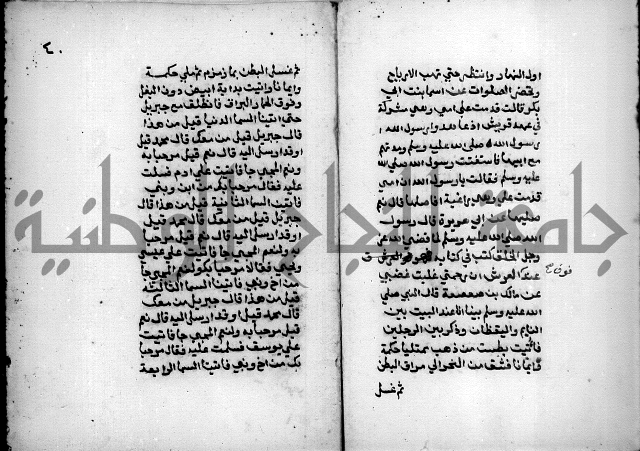 اول النهار وانتظر حتي تهب الارياح
وتحضر الصلوات عن اسما بنت ابي
بكر قالت قدمت علي امي وهي مشركة
في عهد قريش اذ عاهدوا رسول الله
رسول الله صلي الله عليه وسلم ومدتهم
مع ابيها فاستفتت رسول الله صلي الله
عليه وسلم فقالت يارسول الله ان امي
قدمت علي وهي راغبة افاصلها قال نعم
صليها عن ابي هريرة قال رسول
الله صلي الله عليه وسلم لما قضي الله عز
وجل الخلق كتب في كتابه فهو فوق العرش
فوق صح
عنده العرش ان رحمتي غلبت غضبي
عن مالك بن صعصعة قال النبي صلي
الله عليه وسلم بينا انا عند البيت بين
النايم واليقظان وذكر بين الرجلين
فاتيت بطست من ذهب ممتليا حكمة
وايمانا فشق من النحر الي مراق البطن
ثم غسل
٤٠
ثم غسل البطن بما زمزم ثم ملي حكمة
وايمانا واتيت بدابة ابيض دون البغل
وفوق الحمار البراق فانطلقت مع جبريل
حتي اتينا السما الدنيا قيل من هذا
قال جبريل قيل من معك قال محمد قيل
اوقد ارسل اليه قال نعم قيل مرحبا به
ونعم المجي جا فاتيت علي ادم فسلمت
عليه فقال مرحبا بك من ابن ونبي
فاتينا السما الثانية قيل من هذا قال
جبريل قيل من معك قال محمد قيل
اوقد ارسل اليه قال نعم قيل مرحبا
به ولنعم المجي جا فاتيت علي عيسي
ويحيي فقالا مرحبا بك ولنعم المجي جا
من اخ ونبي فاتينا السما الثالثة
قيل من هذا قال جبريل قيل من معك
قال محمد قيل اوقد ارسل اليه قال نعم
قيل مرحبا به ولنعم المجي جا فاتيت
علي يوسف فسلمت عليه فقال مرحبا
بك من اخ ونبي فاتينا السما الرابعة
جامعة النجاح الوطنية